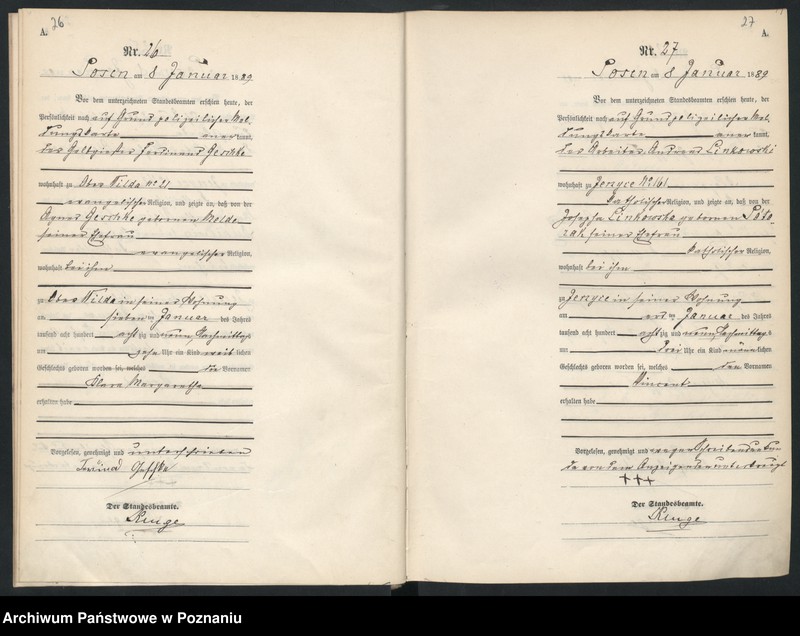 26
A.
Nr. 26
Posen am 8 Januar 1889
Vor dem unterzeichneten Standesbeamten erschien heute, der
Persönlichkeit nach auf Grund polizeilicher Mel-
dungskarte anerkannt,
der Gelbgießer Ferdinand Geschke
wohnhaft zu Ober Wilda No 21
evangelischer Religion, und zeigte an, daß von der
Agnes Geschke geborenen
seiner Ehefrau
evangelischer Religion,
wohnhaft bei ihm
zu Ober Wilda in seiner Wohnung
am sieben ten Januar des Jahres
tausend acht hundert acht zig und neun Nachmittags
um zehn Uhr ein Kind weib lichen
Geschlechts geboren worden sei, welches die Vornamen
Klara Margaretha
erhalten habe
Vorgelesen, genehmigt und unterschrieben
Der Standesbeamte.
Kluge
27
A.
Nr. 27
Posen am 8 Januar 1889
Vor dem unterzeichneten Standesbeamten erschien heute, der
Persönlichkeit nach auf Grund polizeilicher Mel-
dungskarte anerkannt,
der Arbeiter Andreas Linkowski
wohnhaft zu Jerzyce No 161
katholischer Religion, und zeigte an, daß von der
Josepha Linkowska geborenen
seiner Ehefrau
katholischer Religion,
wohnhaft bei ihm
zu Jerzyce in seiner Wohnung
am ten Januar des Jahres
tausend acht hundert acht zig und neun Nachmittags
um drei Uhr ein Kind männ lichen
Geschlechts geboren worden sei, welches den Vornamen
Vincent
erhalten habe
Vorgelesen, genehmigt und wegen Schreibensunkun-
de von dem Anzeigenden unterkreuzt
+++
Der Standesbeamte.
Kluge
Archiwum Państwowe w Poznaniu